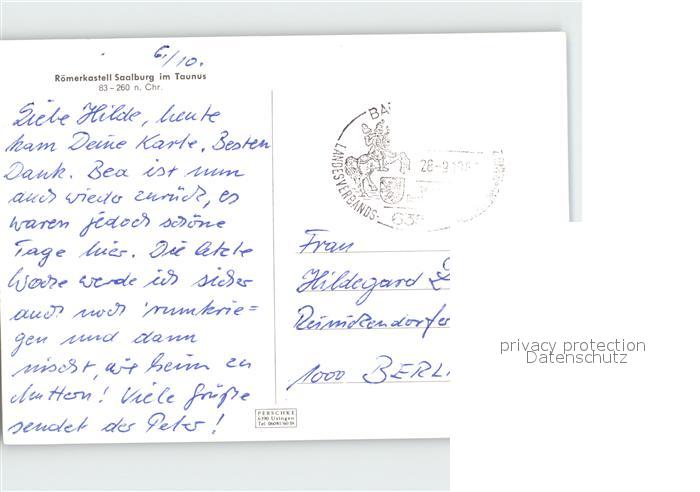 6/10.
Römerkastell Saalburg im Taunus
83 – 260 n. Chr.
Liebe Hilde, heute
kam Deine Karte. Besten
Dank. Bea ist nun
auch wieder zurück, es
waren jedoch schöne
Tage hier. Die letzte
Woche werde ich sicher
auch noch 'rumkrie=
gen und dann
nischt, wie heim zu
Muttern! Viele Grüße
sendet der Peter!
BA
LANDESVERBANDS-
28-9.19
635
Frau
Hildegard
Reinickendorfer
1000 BERLI
PERSCHKE
6390 Usingen
Tel.
privacy protection
Datenschutz